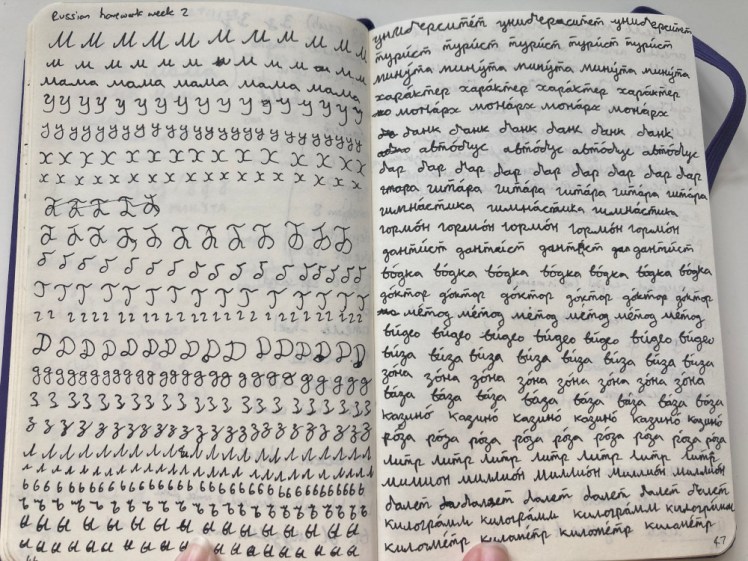 Russian homework week 2
М М М М М М М М М М М
м м м м м м м м м м м
мама мама мама мама мама мама
У У У У У У У У У У У У У У У
у у у у у у у у у у у у у у у у у у у у
Х Х Х Х Х Х Х Х Х Х Х Х Х
х х х х х х х х х х х х х х
Б Б Б Б Б Б Б Б Б Б Б
б б б б б б б б б б б б б б б
Г Г Г Г Г Г Г Г Г Г Г Г Г
г г г г г г г г г г г г г г г г г
Д Д Д Д Д Д Д Д Д Д Д Д Д Д
д д д д д д д д д д д д д д д д д д д д
З З З З З З З З З З З З З З З
з з з з з з з з з з з з з з з з
Л Л Л Л Л Л Л Л Л Л Л Л Л Л Л Л
л л л л л л л л л л л л л л л л л л
ь ь ь ь ь ь ь ь ь ь ь ь ь ь ь ь ь ь ь ь
ъ ъ ъ ъ ъ ъ ъ ъ ъ ъ ъ ъ ъ ъ ъ ъ ъ
ы ы ы ы ы ы ы ы ы ы ы ы ы ы
ы ы ы ы ы ы ы ы ы ы ы ы ы ы
университе́т университе́т университе́т
тури́ст тури́ст тури́ст тури́ст тури́ст
мину́та мину́та мину́та мину́та мину́та
хара́ктер хара́ктер хара́ктер хара́ктер
мона́рх мона́рх мона́рх мона́рх
банк банк банк банк банк
авто́бус авто́бус авто́бус
бар бар бар бар бар бар бар бар
гитара гита́ра гита́ра гита́ра гита́ра
гимна́стика гимна́стика гимна́стика
гормо́н гормо́н гормо́н гормо́н гормо́н
данти́ст дантист дантист данти́ст
во́дка во́дка во́дка во́дка во́дка во́дка во́дка
до́ктор до́ктор до́ктор до́ктор до́ктор
ме́тод ме́тод ме́тод ме́тод ме́тод
ви́део ви́део ви́део ви́део ви́део ви́део
ви́за ви́за ви́за ви́за ви́за ви́за ви́за
зо́на зо́на зо́на зо́на зо́на зо́на зо́на
ва́за ва́за ва́за ва́за ва́за ва́за ва́за
казино́ казино́ казино́ казино́ казино́ казино́
ро́за ро́за ро́за ро́за ро́за ро́за ро́за ро́за
литр литр литр литр литр литр литр
миллио́н миллио́н миллио́н миллио́н миллио́н
бале́т бале́т бале́т бале́т бале́т
килогра́мм килогра́мм килогра́мм килограмм
киломе́тр киломе́тр киломе́тр киломе́тр
47